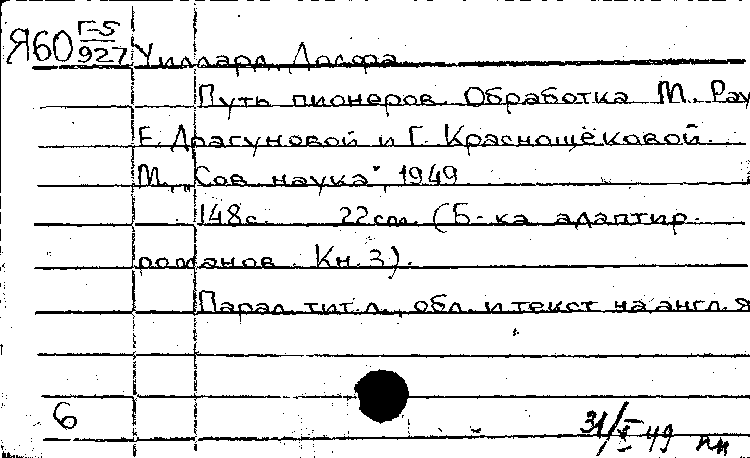 Я60 Г-5/927 Уиллард, Долфа
Путь пионеров. Обработка М. Рау
Е. Драгуновой и Г. Краснощёковой.
М., „Сов. наука", 1949
148с. 22см. (Б-ка адаптир.
романов. Кн. 3).
Парал. тит. л., обл. и текст на англ. я
6
31/X 49